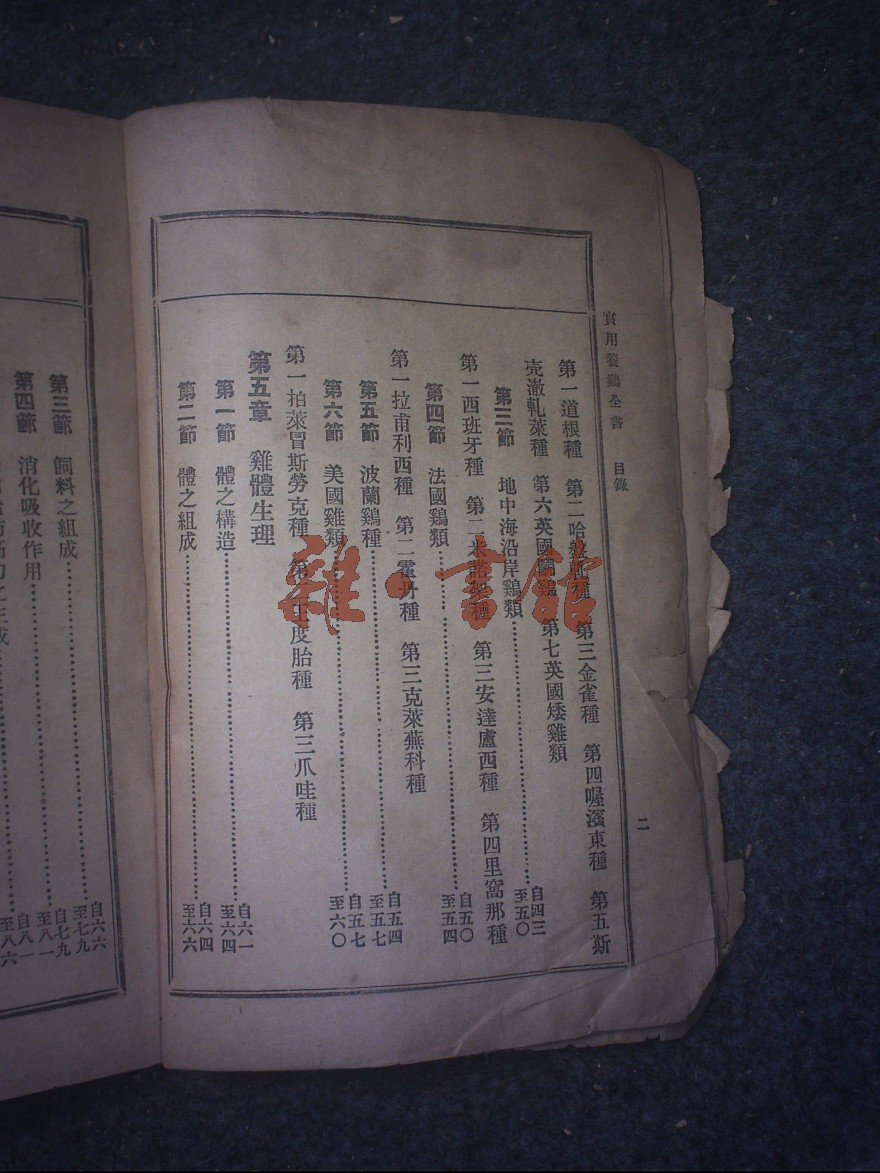 實用養鷄全書 目錄
二
第一道根種 第二哈 種 第三金雀種 第四喔濱東種 第五斯
壳澈軋萊種 第六英國鬭鷄 第七英國矮雞類
第三節 地中海沿岸鷄類 自四三至五〇
第一西班牙種 第二 種 第三安達盧西種 第四里窩那種
第四節 法國鷄類 自五〇至五四
第一拉甫利西種 第二霍丹種 第三克萊蕪科種
第五節 波蘭鷄種 自五四至五七
第六節 美國雞類 自五七至六〇
第一拍萊冒斯勞克種 第二 度胎種 第三爪哇種
第五章 雞體生理
第一節 體之構造 自六一至六四
第二節 體之組成 自六四至六六
第三節 飼料之組成 自六六至七九
第四節 消化吸收作用 自七九至八一
自八一至八六
雜·書館